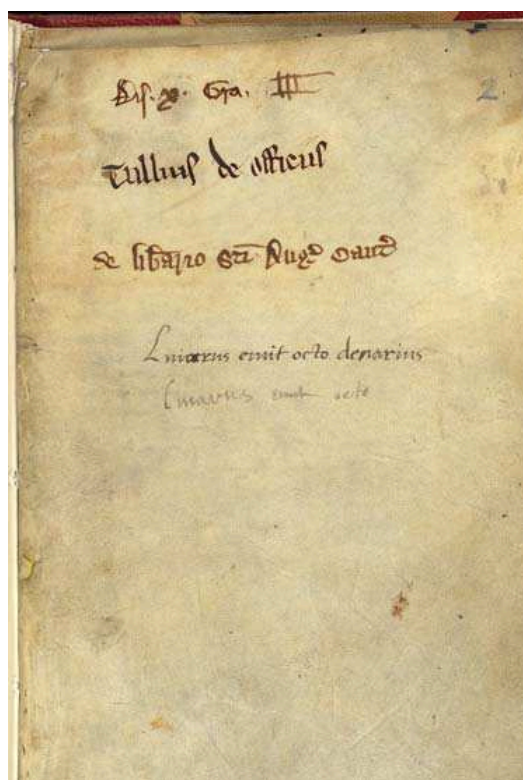 Dis. x. Gra. IIII
2
Tullius de officiis
de librario Sci Aug Cant
Lniarus emit octo denarius
emit octo